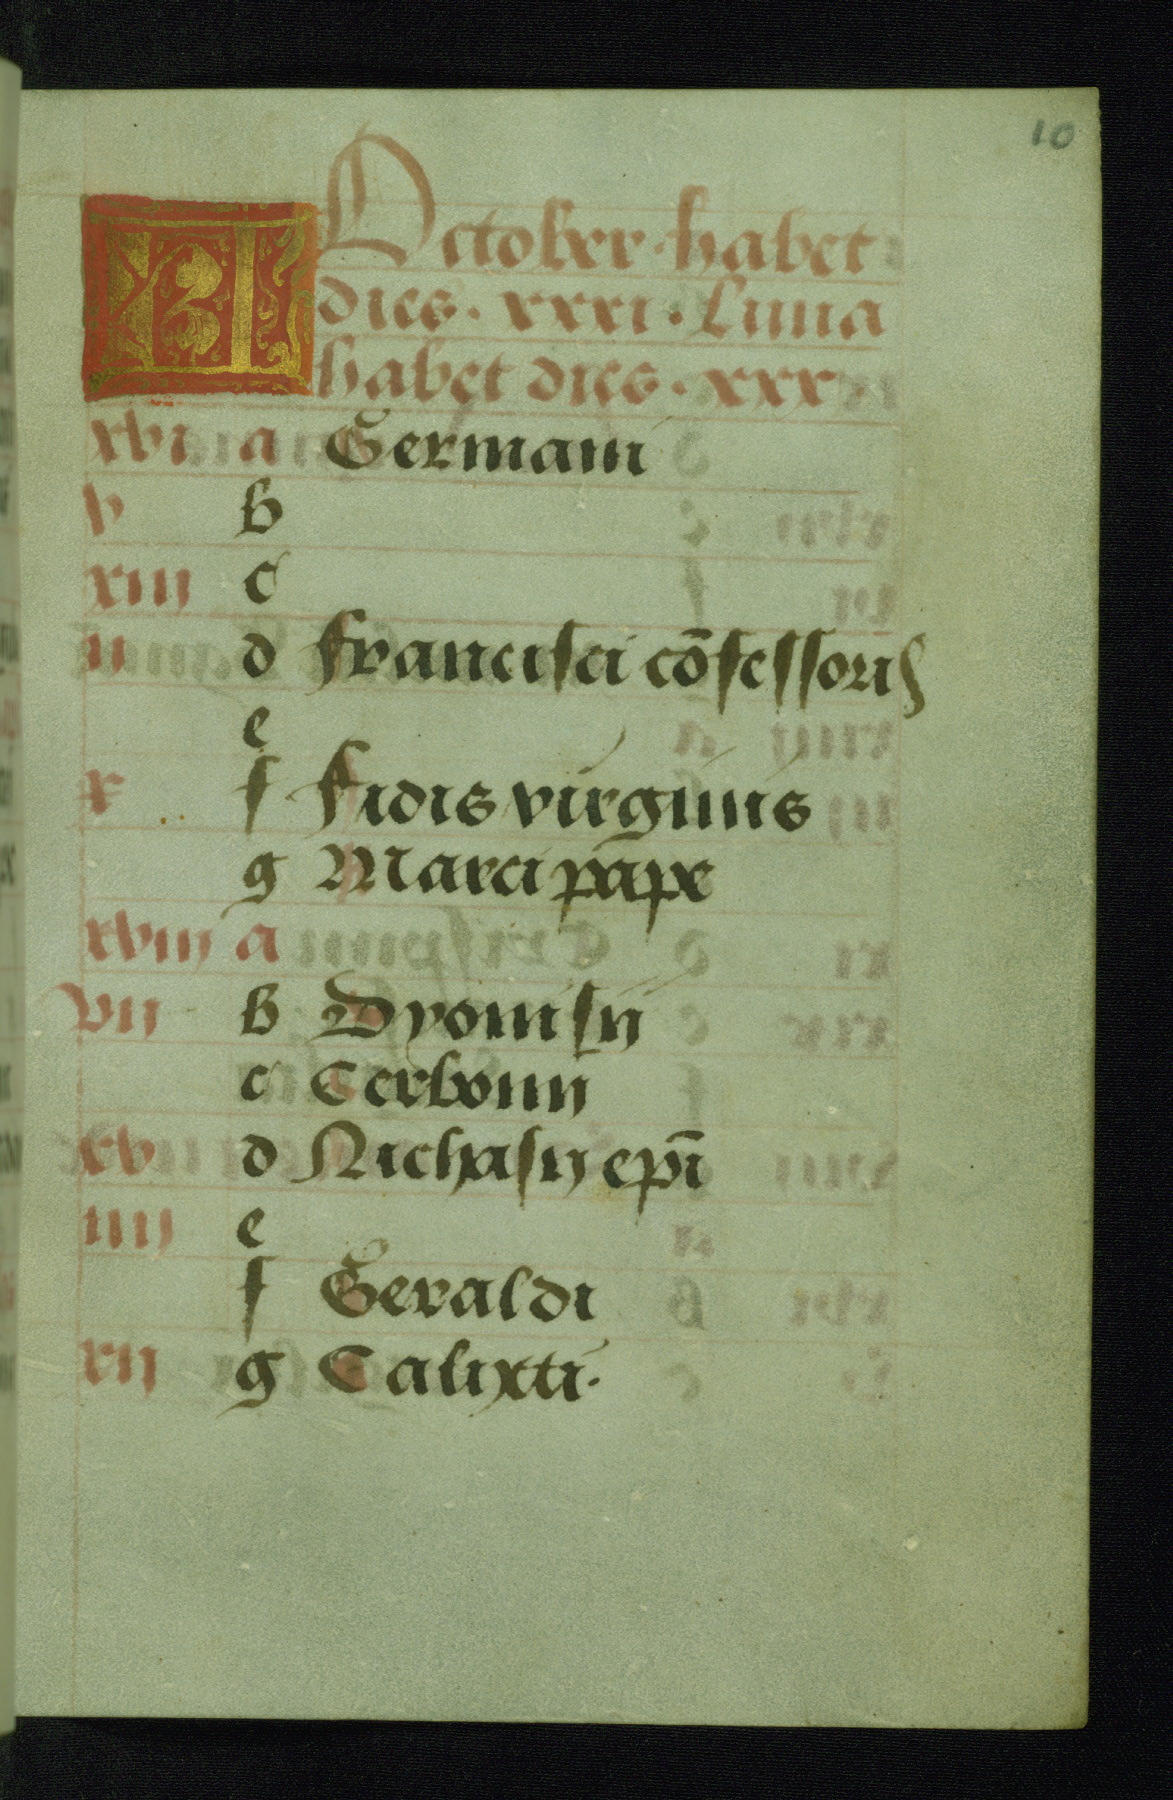 10
KL October habet
dies. xxxi. Luna
habet dies. xxx
xvi a Germani
v b
xiii c
ii d Francisci cōfessoris
e
x f Fidis virginis
g Marci pape
xviii a
vii b Dyonisij
c Cerbonij
xv d Nichasij epī
iiii e
f Geraldi
xii g Calixti.